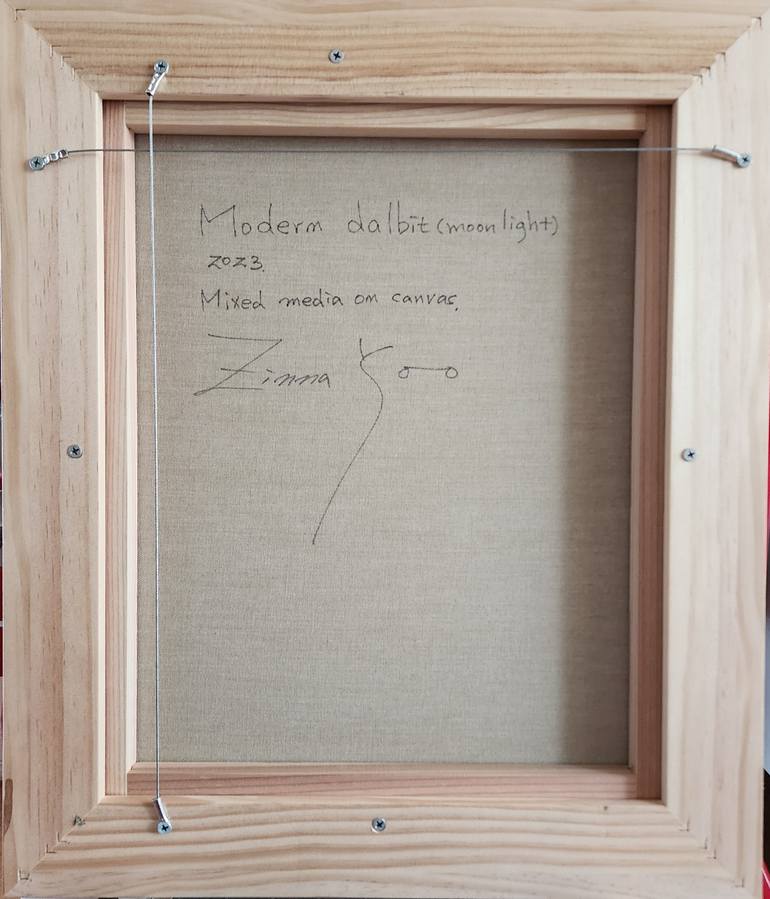 Modern dalbit (moonlight)
2023.
Mixed media on canvas.
Zinna Yoo